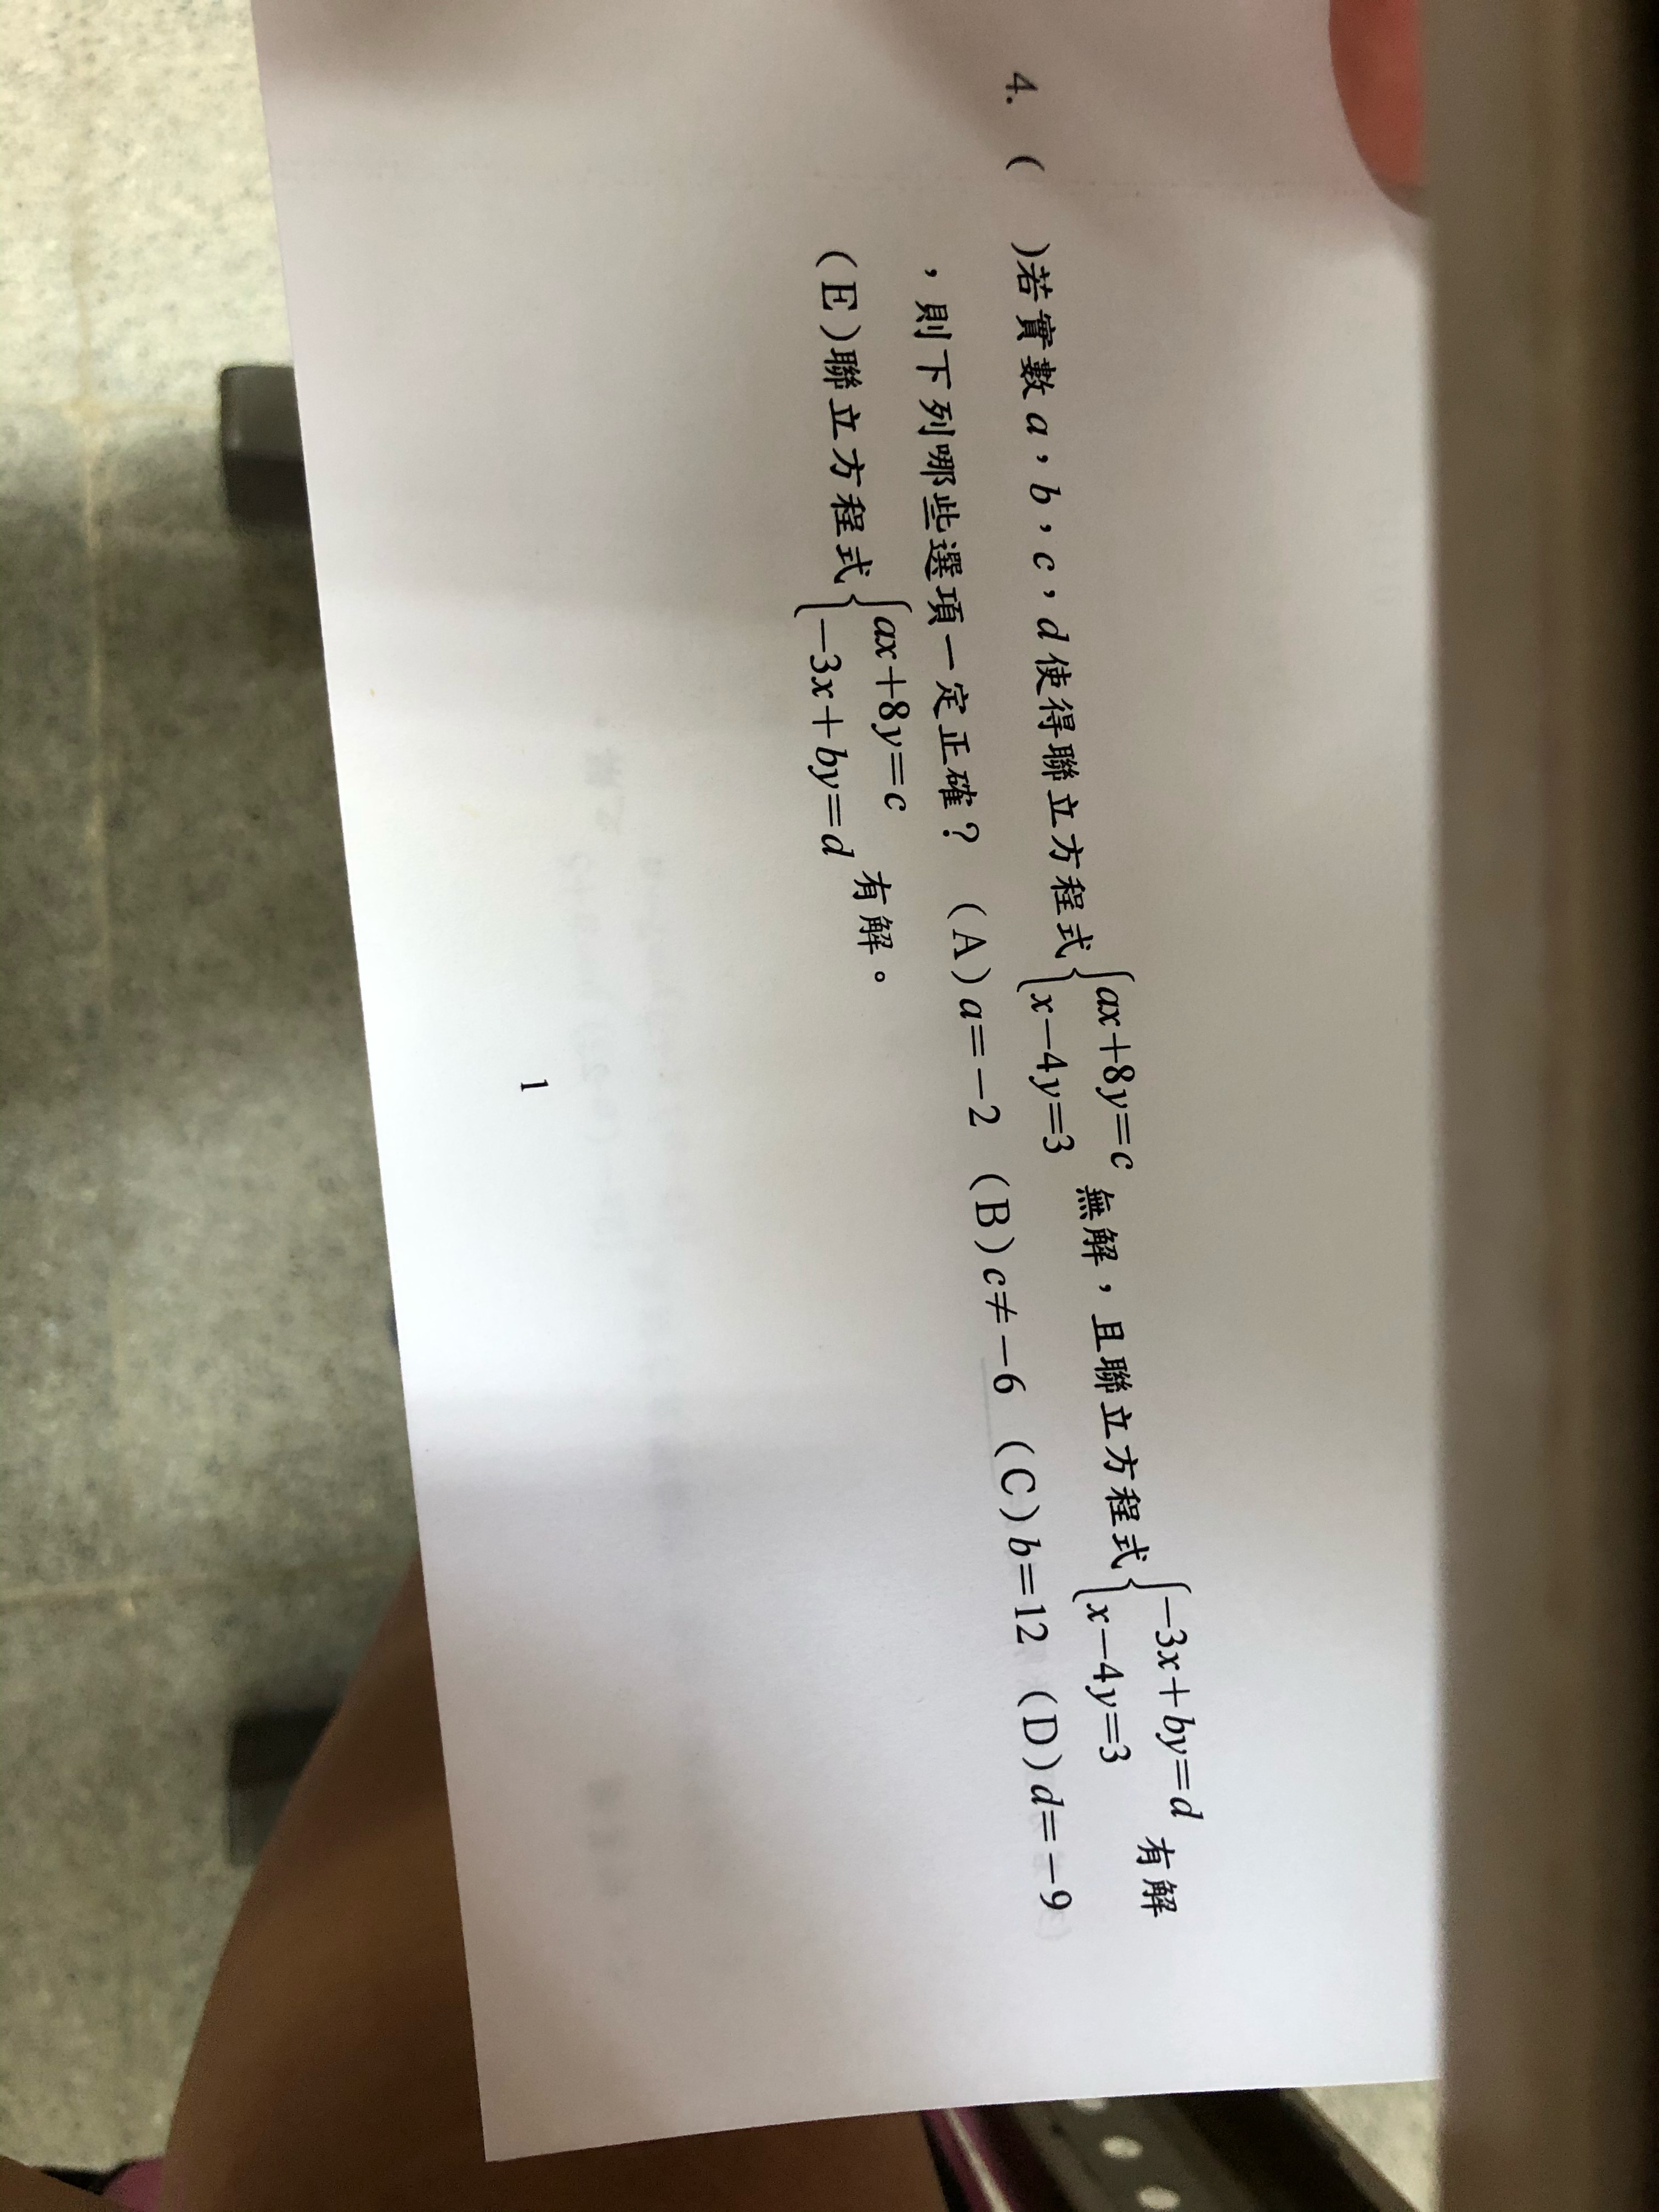 4. (　)若實數a，b，c，d使得聯立方程式{ax+8y=c x−4y=3 無解，且聯立方程式{−3x+by=d x−4y=3 有解
，則下列哪些選項一定正確？ (A)a=−2 (B)c≠−6 (C)b=12 (D)d=−9
(E)聯立方程式{ax+8y=c −3x+by=d 有解。
1